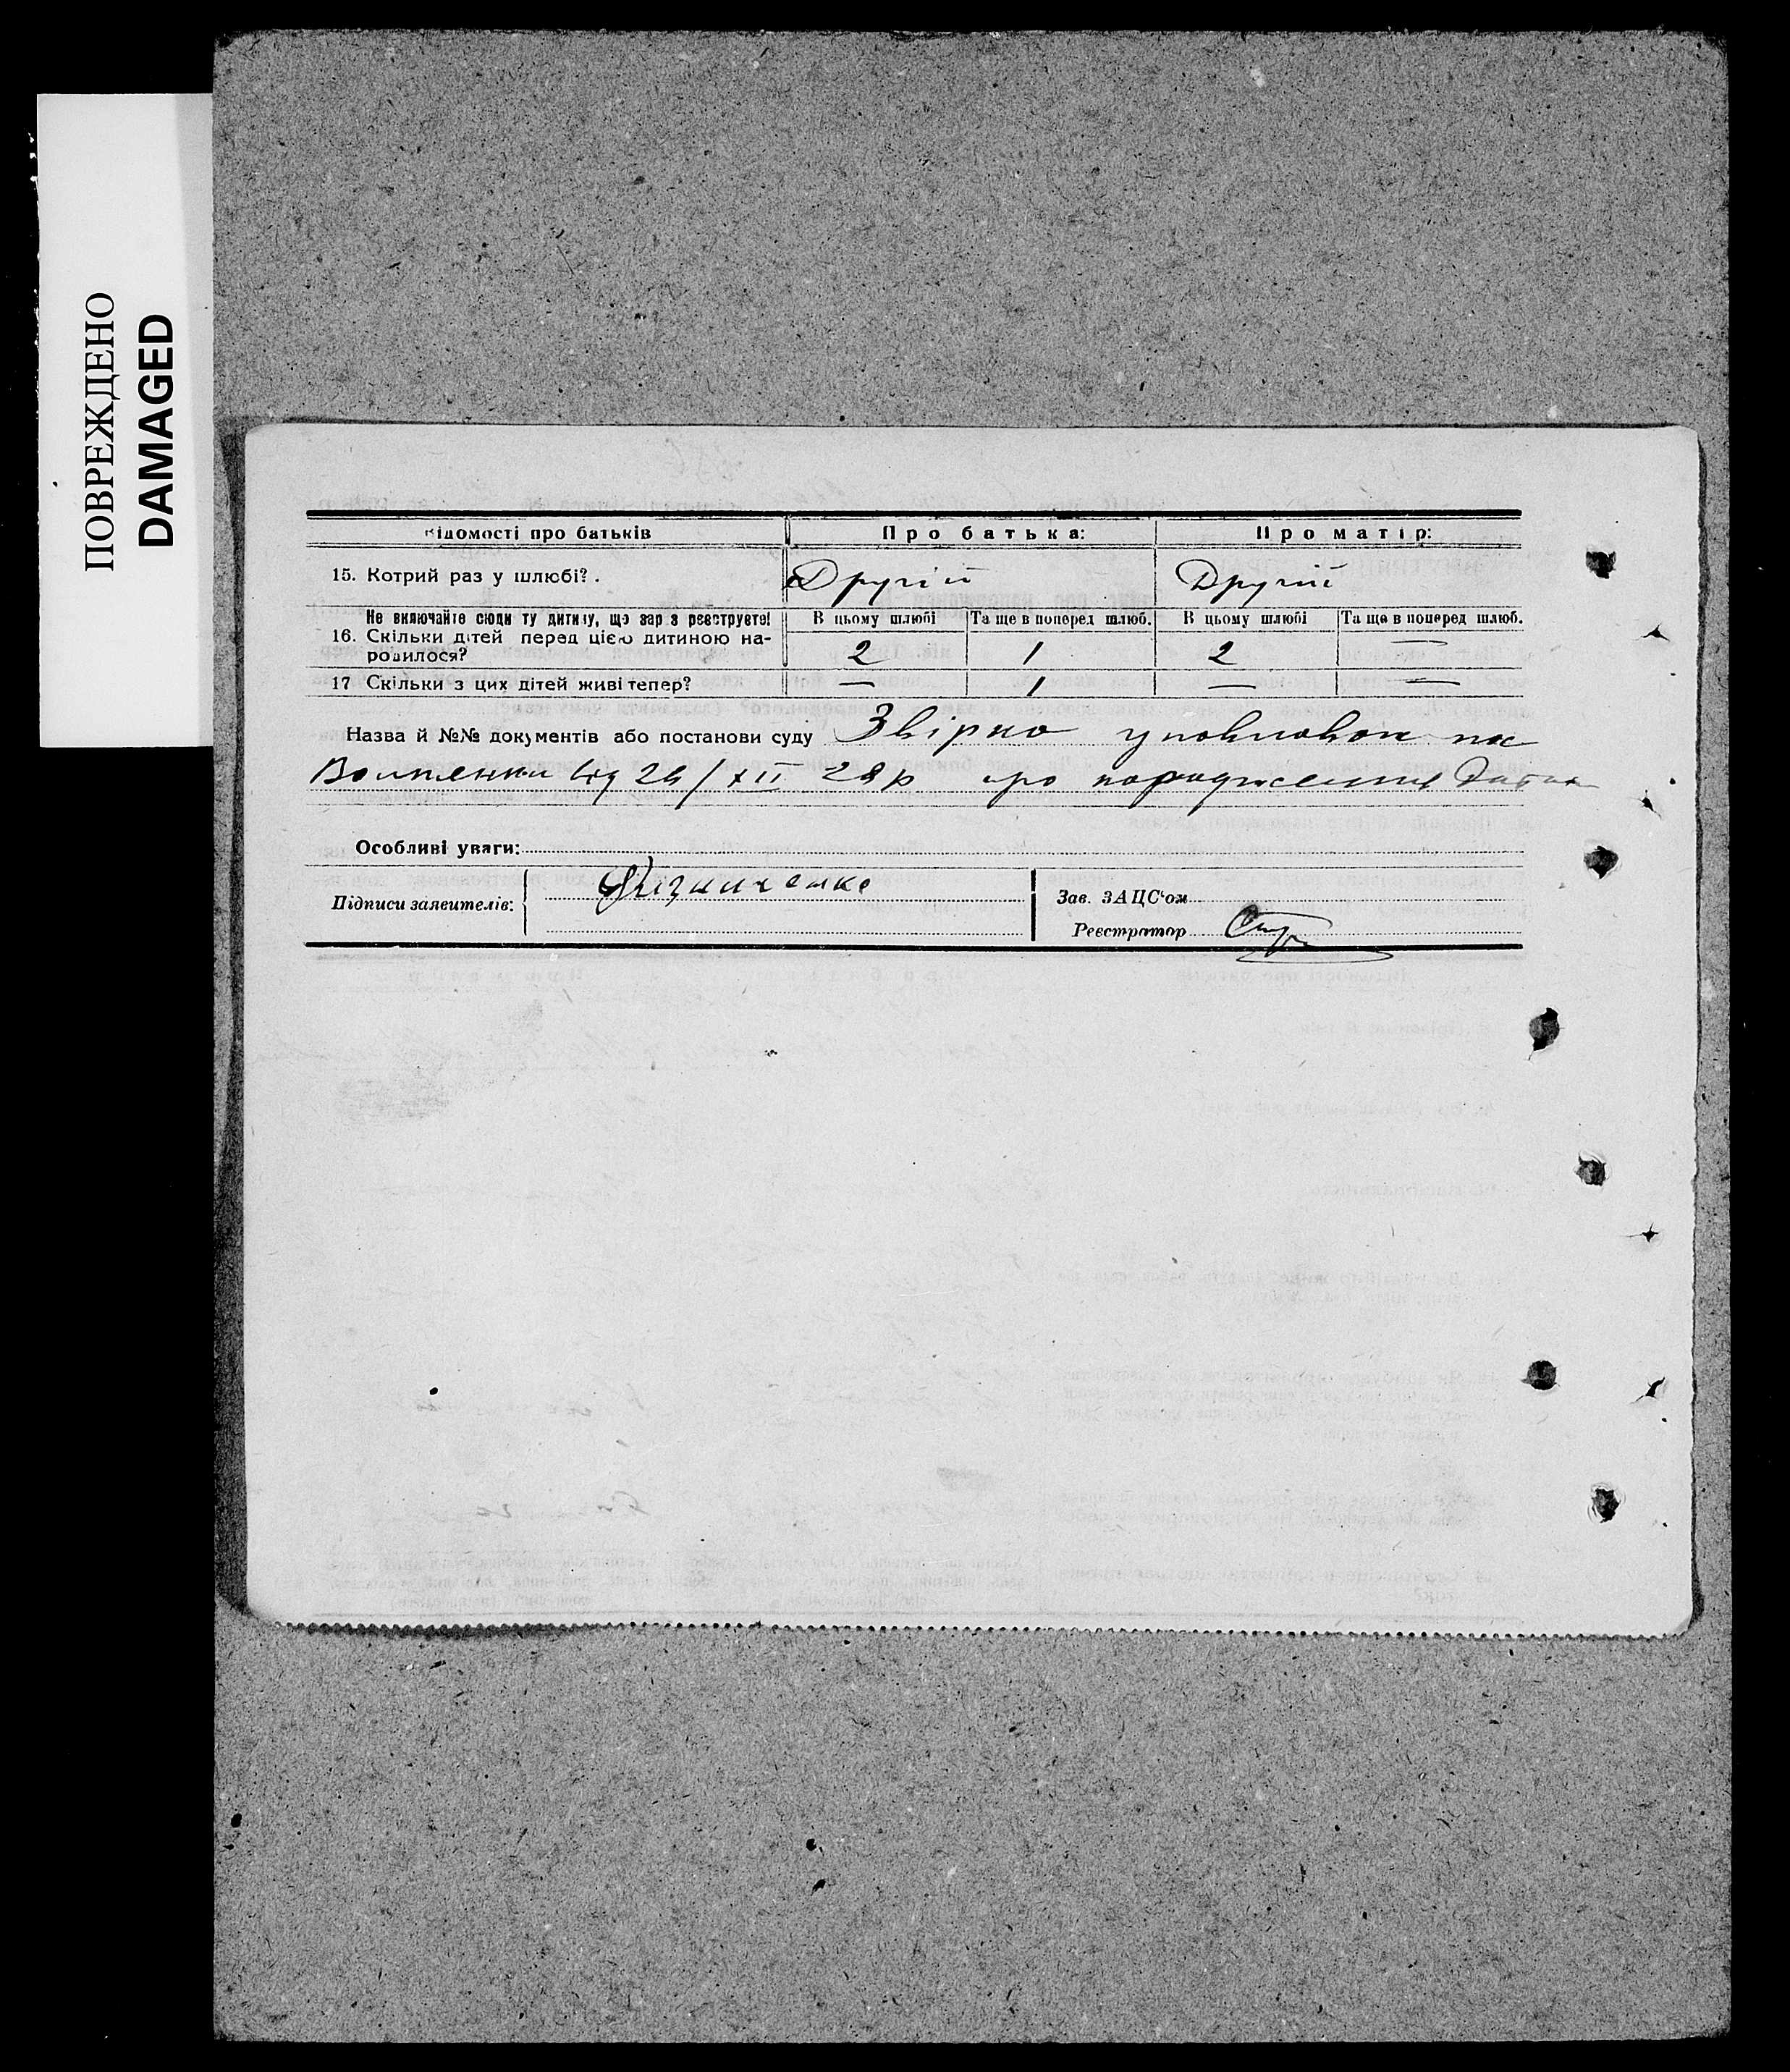 ПОВРЕЖДЕНО
DAMAGED
Відомості про батьків Про батька: Про матір:
15. Котрий раз у шлюбі? . Другій Другій
Не включайте сюди ту дитину, що зараз реєструєте! В цьому шлюбі Та ще в поперед шлюб. В цьому шлюбі Та ще в поперед шлюб.
16. Скільки дітей перед цією дитиною на-
родилося? 2 1 2 —
17 Скільки з цих дітей живі тепер? — 1 — —
Назва й №№ документів або постанови суду Звірно
від 24/XII 28р про народження
Особливі уваги:
Підписи заявителів: Зав. ЗАЦС'ом
Реєстратор